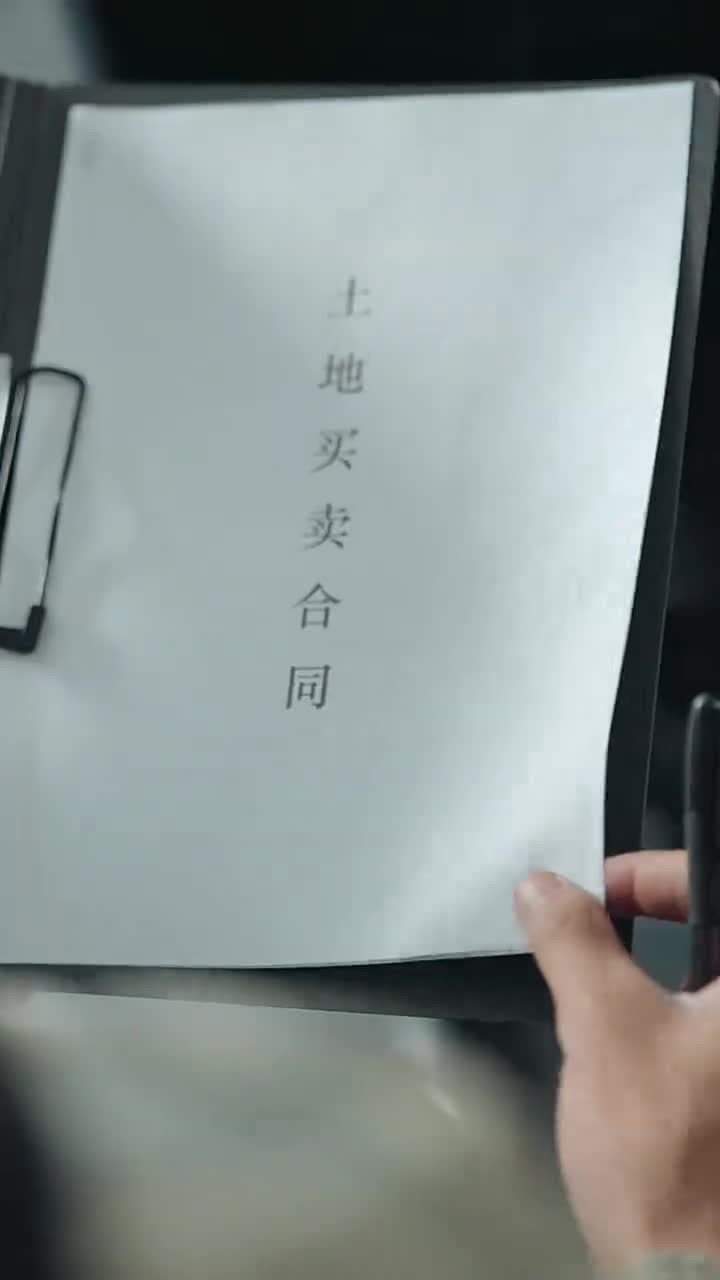 土地买卖合同